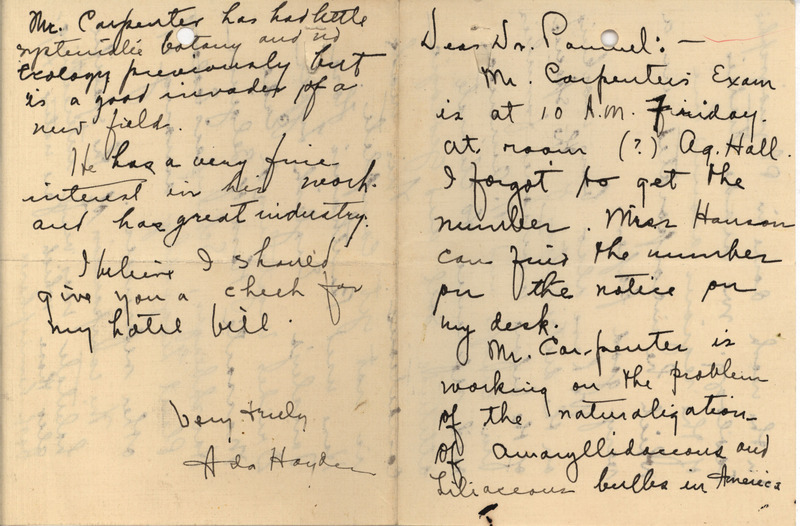 Dear Dr. Pammel: —
Mr. Carpenter's Exam
is at 10 A.M. Friday.
at room (?) Ag. Hall.
I forgot to get the
number. Miss Hanson
can find the number
on the notice on
my desk.
Mr. Carpenter is
working on the problem
of the naturaligation
of amaryllidaceous and
Liliaceous bulbs in America
Mr. Carpenter has had little
systematic botany and no
ecology previously but
is a good invader of a
new field.
He has a very fine
interest in his work.
and has great industry.
I believe I should
give you a check for
my hotel bill.
Very truly
Ada Hayden